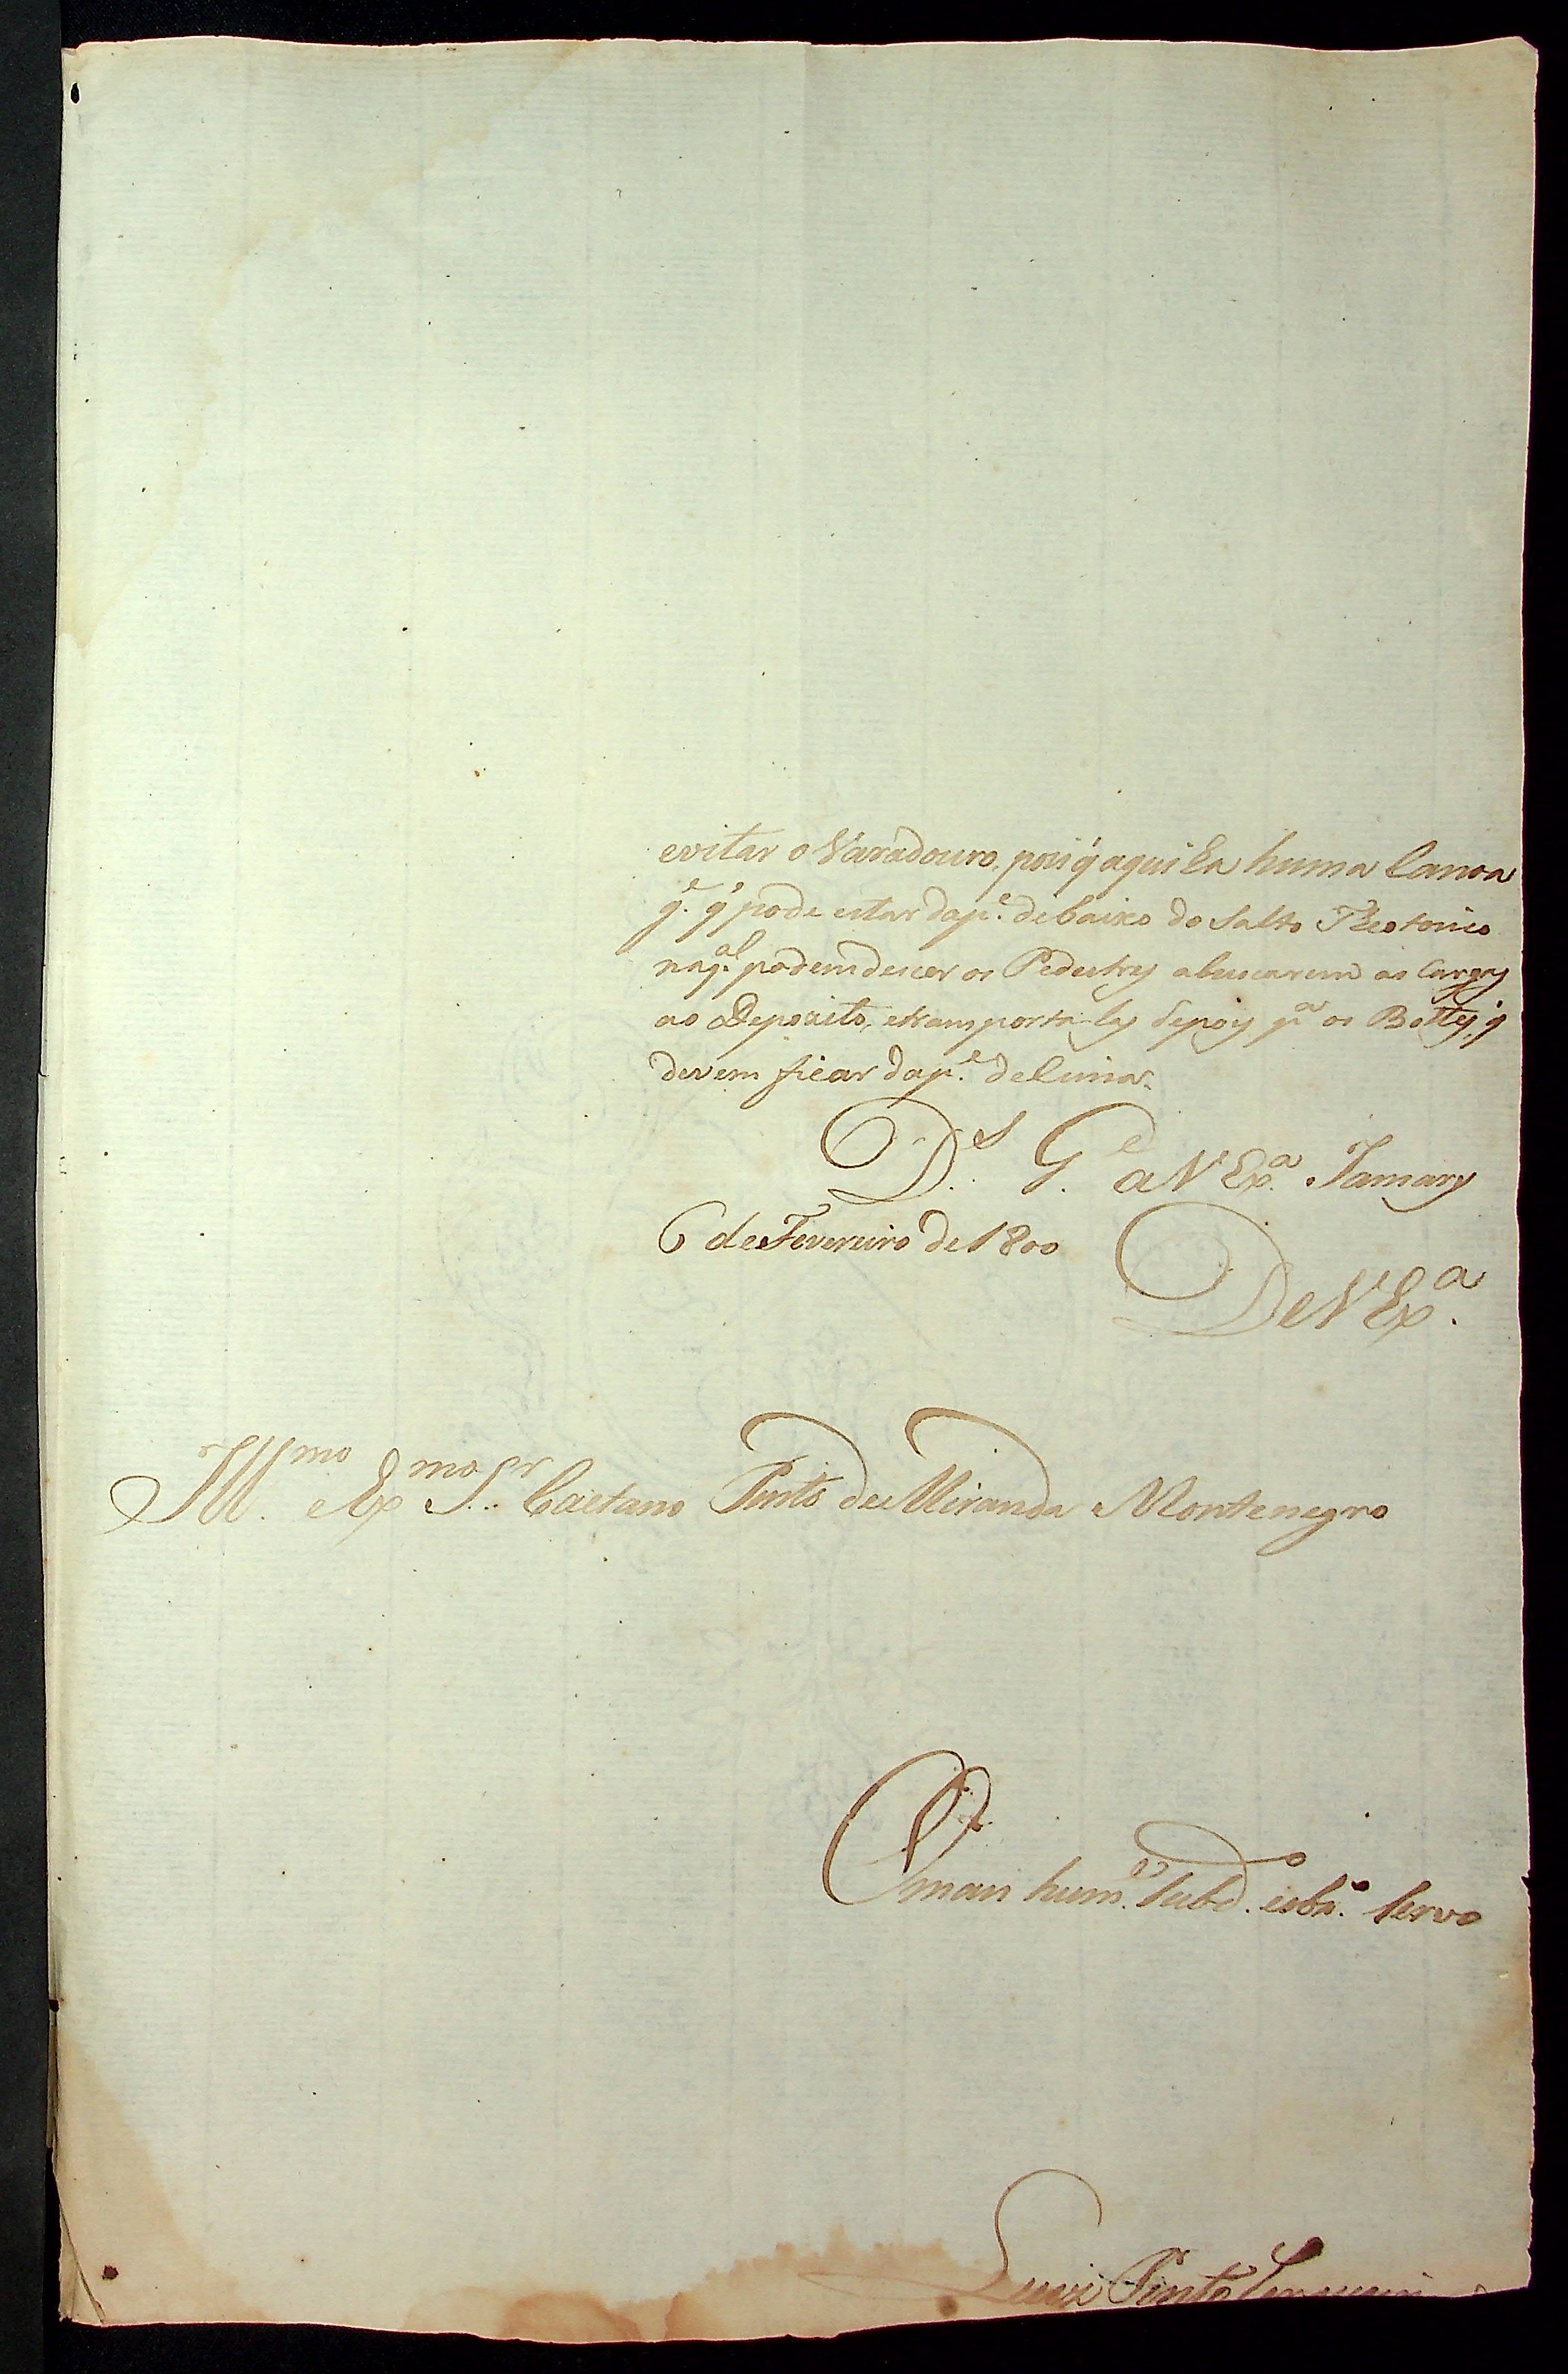 evitar o Varadouro, pois q̃ aqui ha huma Canoa
q.e q̃ pode estar da p.e debaixo do Salto Theotonio
na q.al podem descer os Pedestres a buscarem as Cargas
ao Deposito, e transporta-las depois p.a os Bottes, q̃
devem ficar da p.e de Cima.
D.s G.e a V Ex.a Jamary
6 de Fevereiro de 1800
De V Ex.a
Ill.mo e Ex.mo S.r Caetano Pinto de Miranda Montenegro
O mais hum.e Subd.o e obr.o Servo
Luiz Pinto